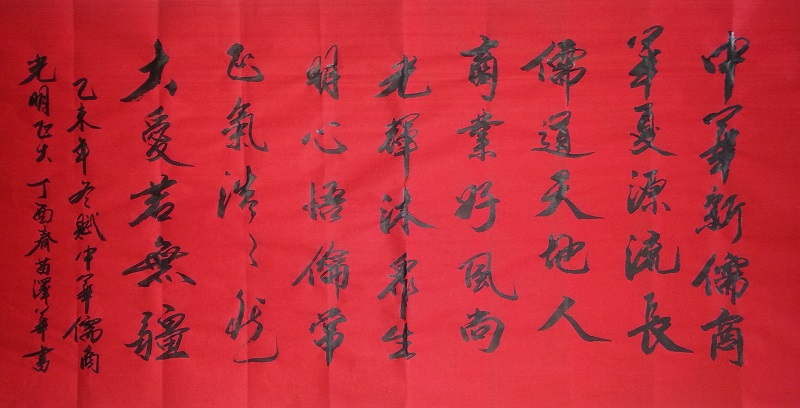 中華新儒商
華夏源流長
儒道天地人
商業好風尚
光輝沐眾生
明心悟倫常
正氣浩浩然
大愛若無疆
乙未年冬賦中華儒商
光明正大 丁酉春苗澤華書